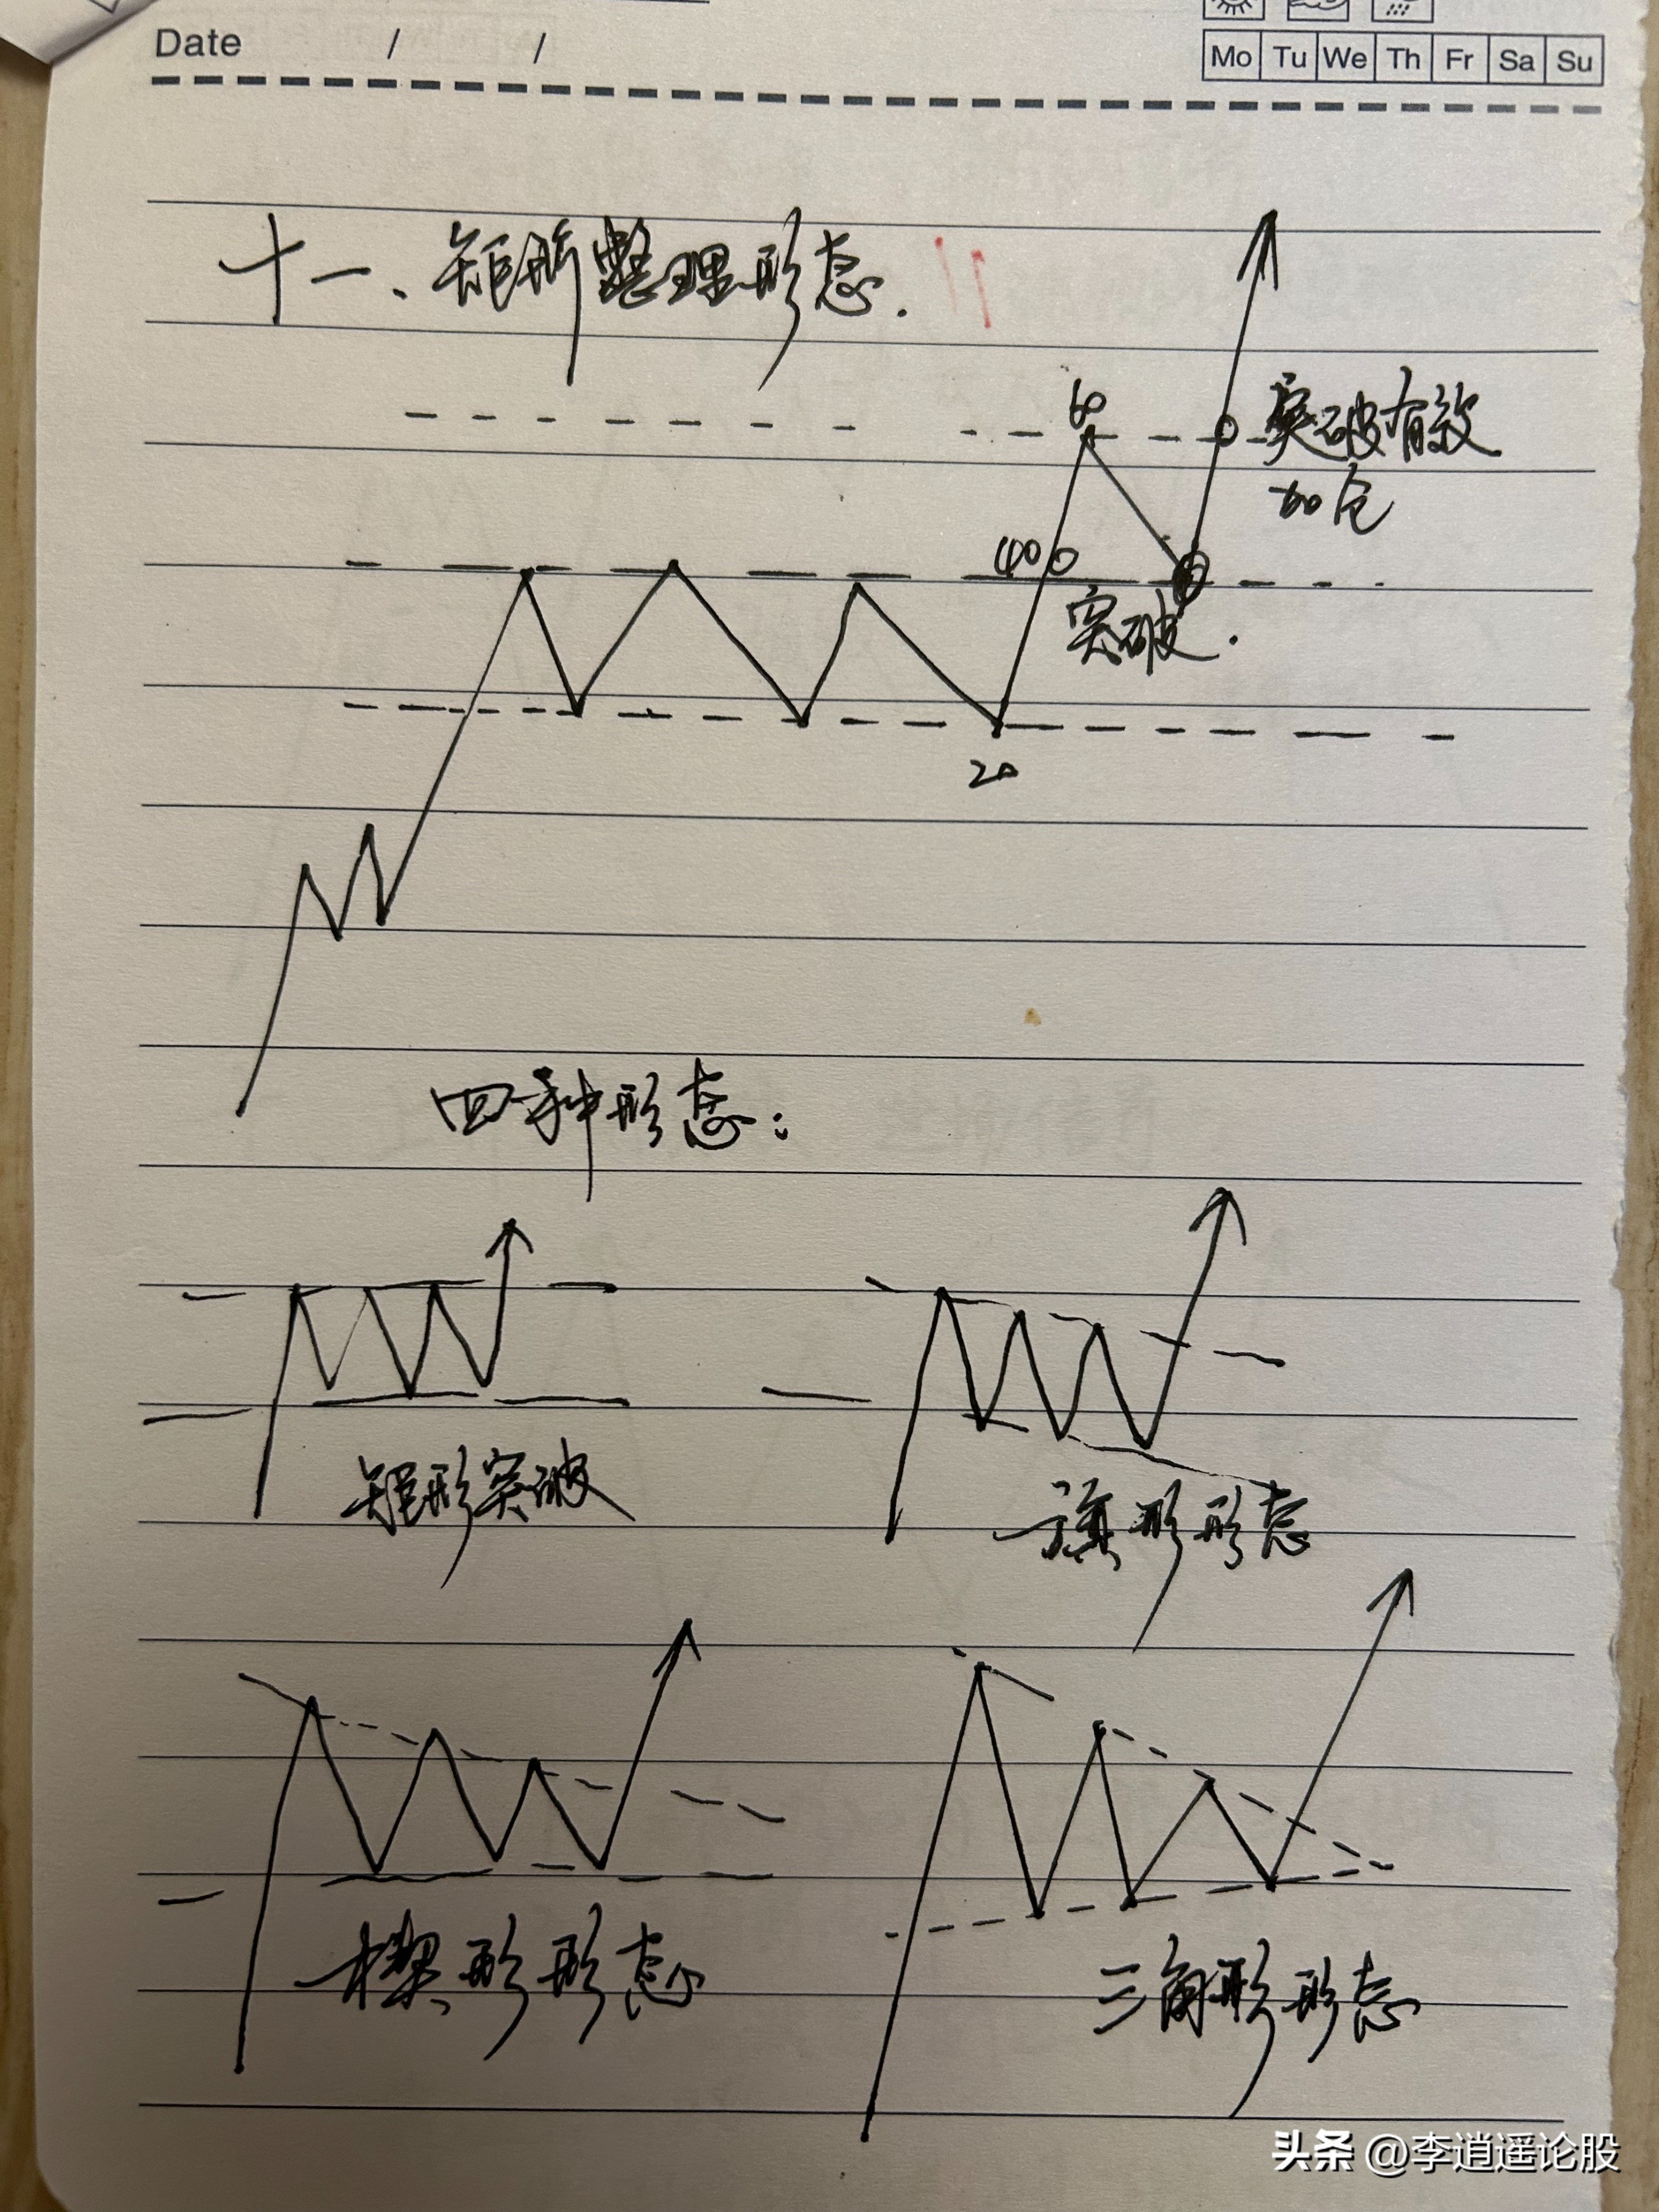 Date / /
Mo Tu We Th Fr Sa Su
十一、矩形整理形态. 11
60
突破有效
加仓
40
突破.
20
四种形态:
矩形突破
旗形形态
楔形形态
三角形形态
头条 @李逍遥论股